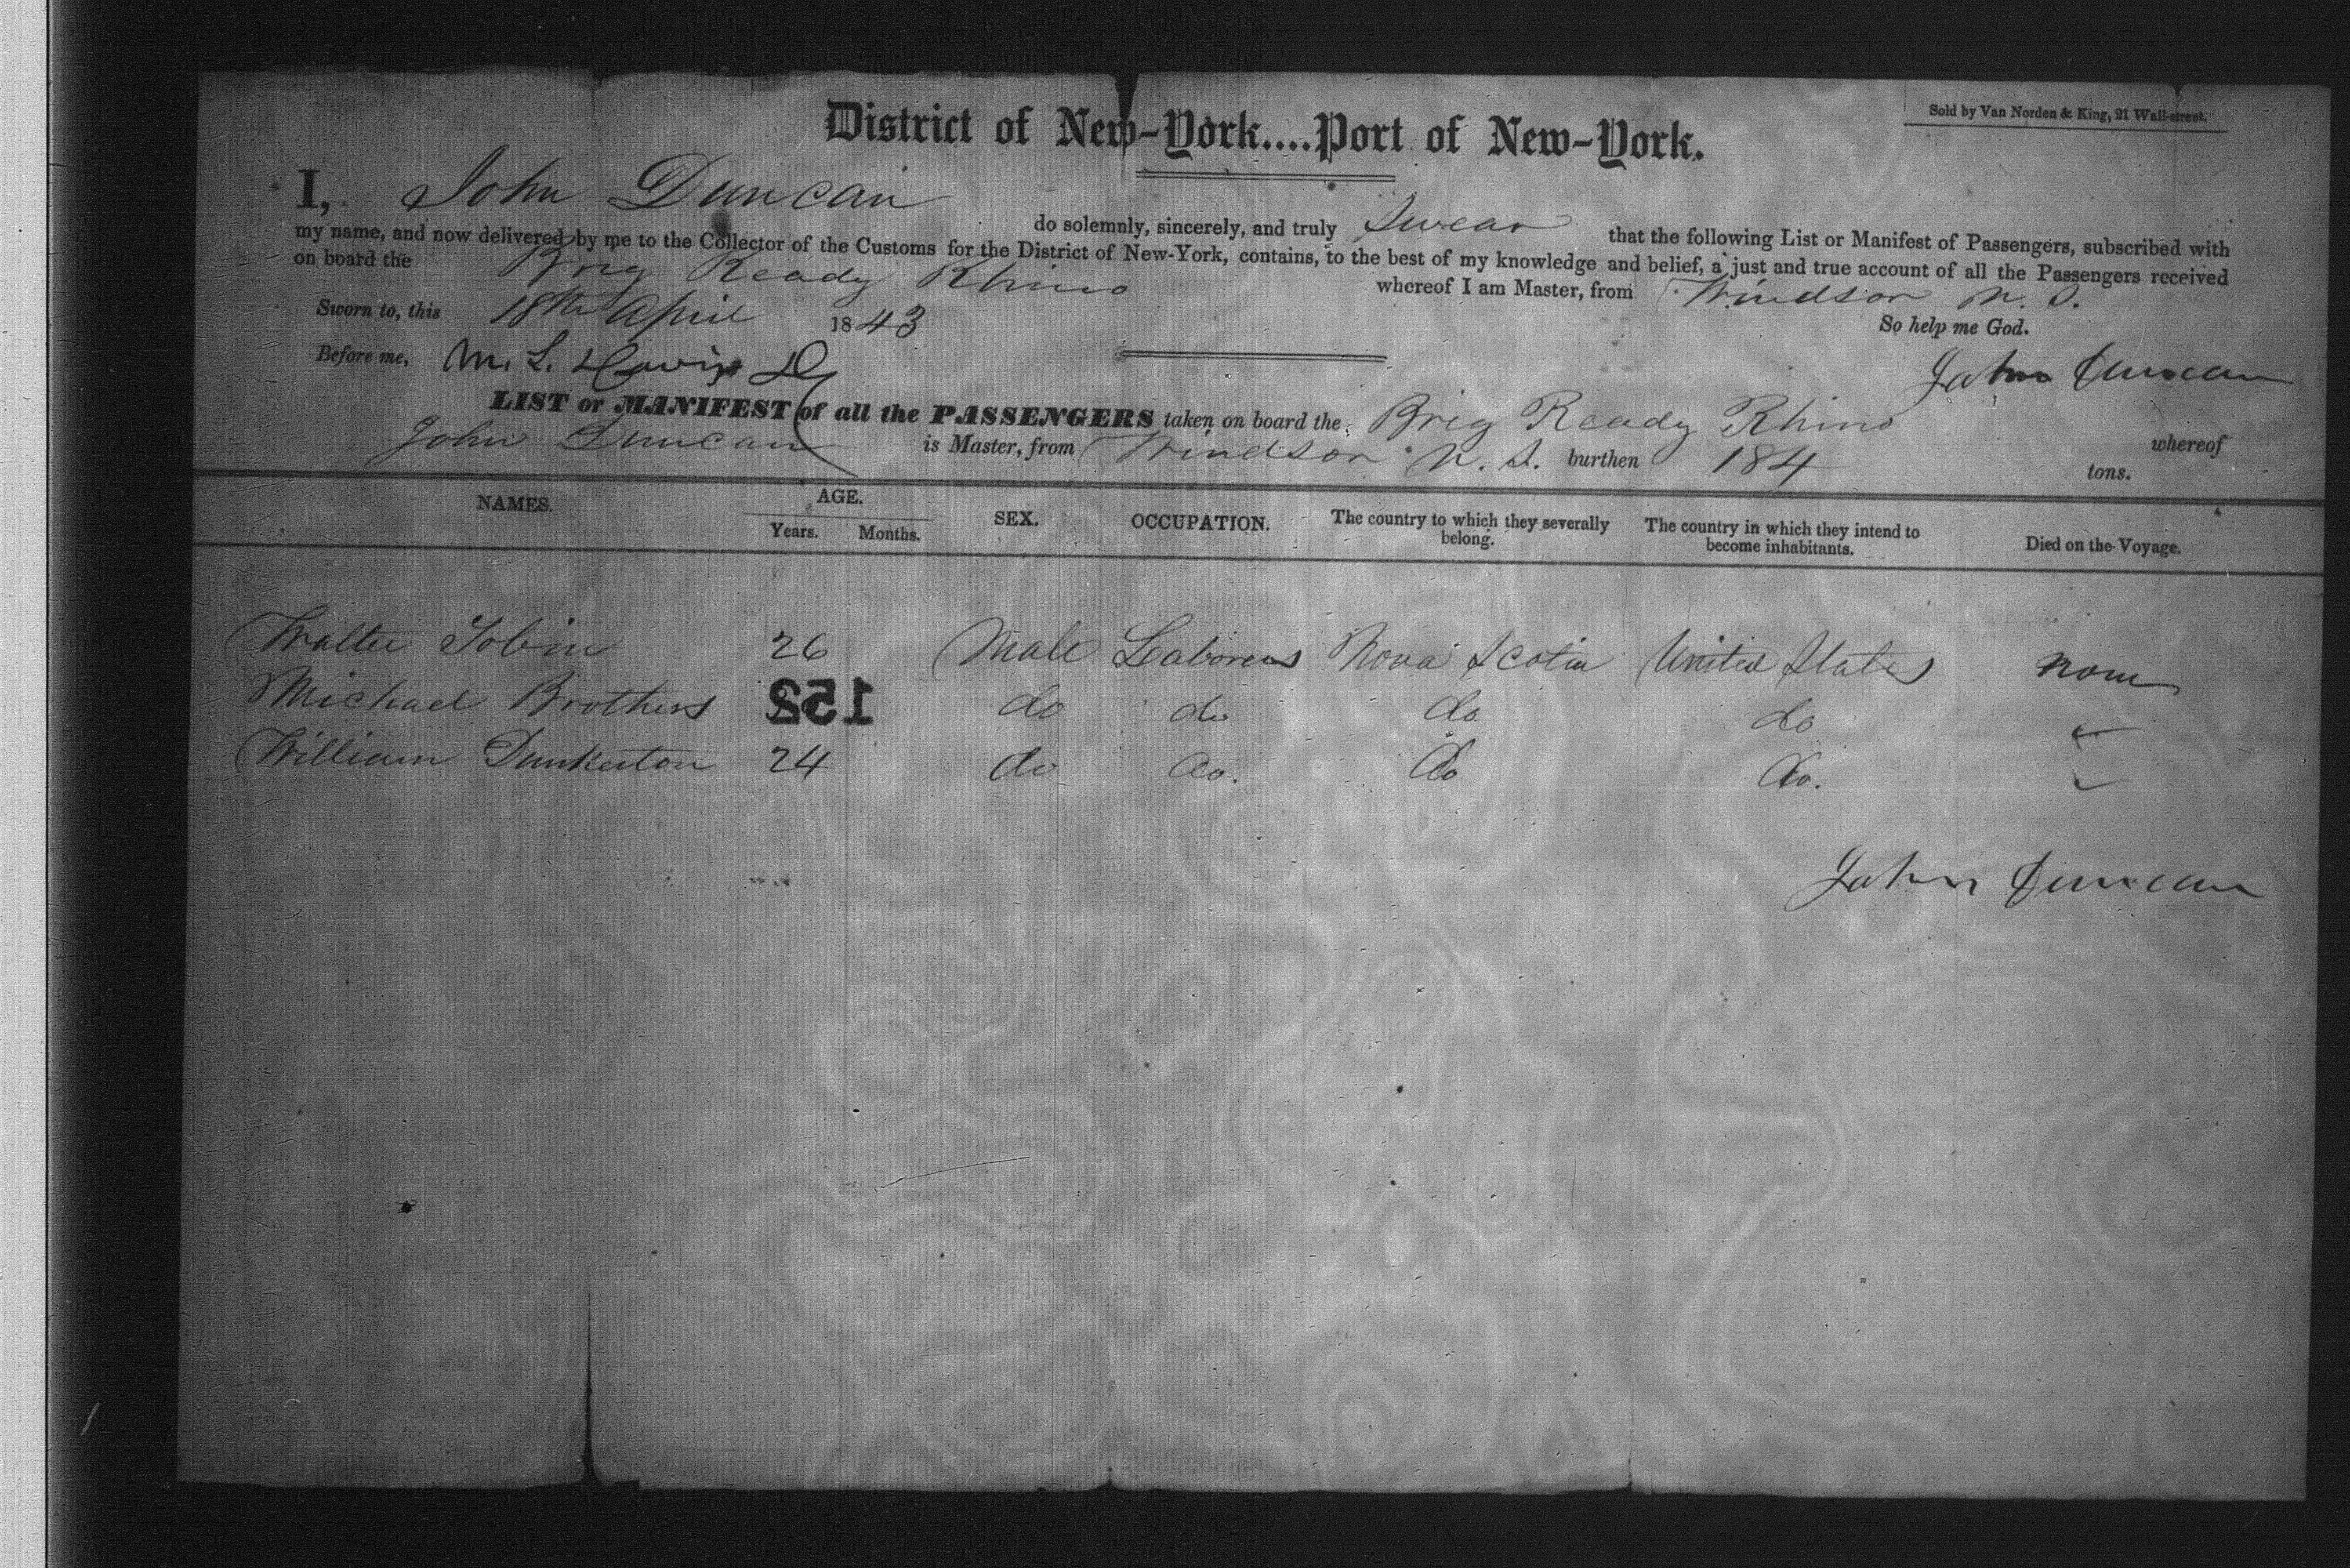 Sold by Van Norden & King, 21 Wall-street.
District of New-York....Port of New-York.
I, John Duncan do solemnly, sincerely, and truly Swear that the following List or Manifest of Passengers, subscribed with
my name, and now delivered by me to the Collector of the Customs for the District of New-York, contains, to the best of my knowledge and belief, a just and true account of all the Passengers received
on board the Brig Ready Rhino whereof I am Master, from Windsor N. S.
Sworn to, this 18th April 1843 So help me God.
Before me, M. L. Davis John Duncan
LIST or MANIFEST of all the PASSENGERS taken on board the Brig Ready Rhino whereof
John Duncan is Master, from Windsor N. S. burthen 184 tons.
NAMES. AGE. SEX. OCCUPATION. The country to which they severally belong. The country in which they intend to become inhabitants. Died on the Voyage.
Years. Months.
Walter Tobin 26 Male Laborers Nova Scotia United States none
Michael Brothers 152 do do do do
William Dunkerton 24 do do. do do.
John Duncan